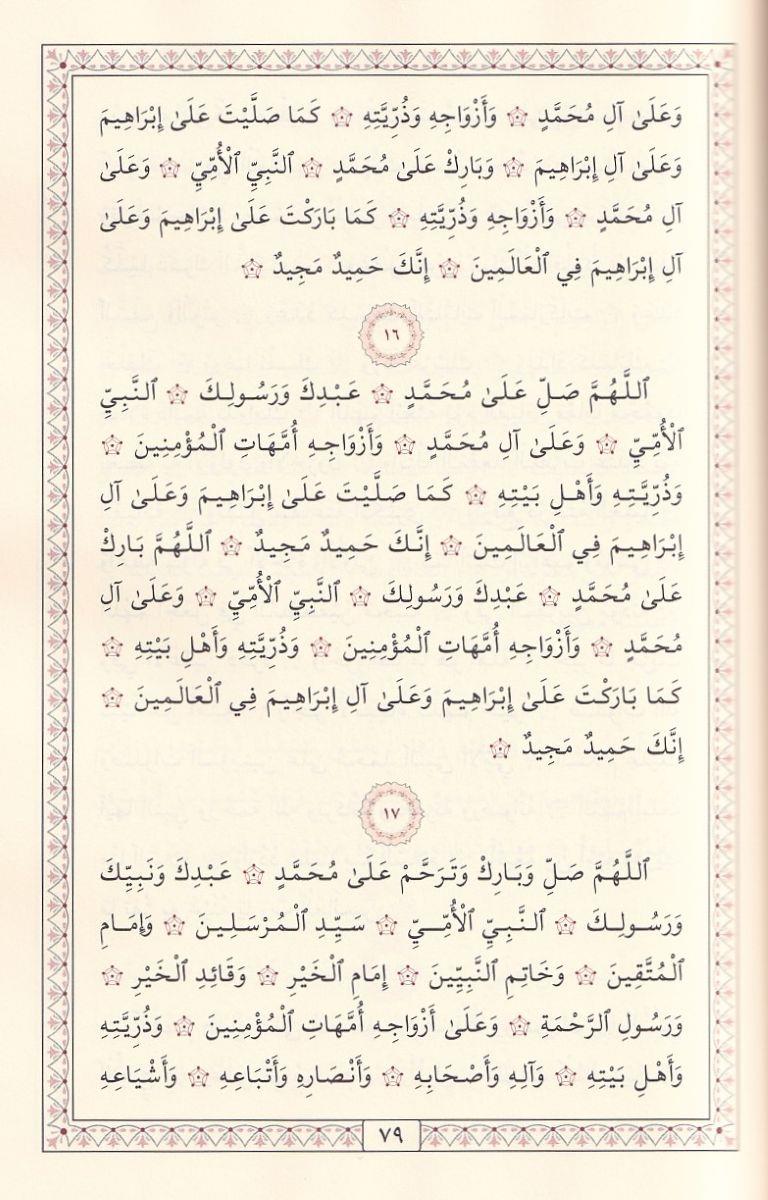 وَعَلَىٰ آلِ مُحَمَّدٍ ۞ وَأَزْوَاجِهِ وَذُرِّيَّتِهِ ۞ كَمَا صَلَّيْتَ عَلَىٰ إِبْرَاهِيمَ
وَعَلَىٰ آلِ إِبْرَاهِيمَ ۞ وَبَارِكْ عَلَىٰ مُحَمَّدٍ ۞ ٱلنَّبِيِّ ٱلْأُمِّيِّ ۞ وَعَلَىٰ
آلِ مُحَمَّدٍ ۞ وَأَزْوَاجِهِ وَذُرِّيَّتِهِ ۞ كَمَا بَارَكْتَ عَلَىٰ إِبْرَاهِيمَ وَعَلَىٰ
آلِ إِبْرَاهِيمَ فِي ٱلْعَالَمِينَ ۞ إِنَّكَ حَمِيدٌ مَجِيدٌ ۞
١٦
ٱللَّهُمَّ صَلِّ عَلَىٰ مُحَمَّدٍ ۞ عَبْدِكَ وَرَسُولِكَ ۞ ٱلنَّبِيِّ
ٱلْأُمِّيِّ ۞ وَعَلَىٰ آلِ مُحَمَّدٍ ۞ وَأَزْوَاجِهِ أُمَّهَاتِ ٱلْمُؤْمِنِينَ ۞
وَذُرِّيَّتِهِ وَأَهْلِ بَيْتِهِ ۞ كَمَا صَلَّيْتَ عَلَىٰ إِبْرَاهِيمَ وَعَلَىٰ آلِ
إِبْرَاهِيمَ فِي ٱلْعَالَمِينَ ۞ إِنَّكَ حَمِيدٌ مَجِيدٌ ۞ ٱللَّهُمَّ بَارِكْ
عَلَىٰ مُحَمَّدٍ ۞ عَبْدِكَ وَرَسُولِكَ ۞ ٱلنَّبِيِّ ٱلْأُمِّيِّ ۞ وَعَلَىٰ آلِ
مُحَمَّدٍ ۞ وَأَزْوَاجِهِ أُمَّهَاتِ ٱلْمُؤْمِنِينَ ۞ وَذُرِّيَّتِهِ وَأَهْلِ بَيْتِهِ ۞
كَمَا بَارَكْتَ عَلَىٰ إِبْرَاهِيمَ وَعَلَىٰ آلِ إِبْرَاهِيمَ فِي ٱلْعَالَمِينَ ۞
إِنَّكَ حَمِيدٌ مَجِيدٌ ۞
١٧
ٱللَّهُمَّ صَلِّ وَبَارِكْ وَتَرَحَّمْ عَلَىٰ مُحَمَّدٍ ۞ عَبْدِكَ وَنَبِيِّكَ
وَرَسُولِكَ ۞ ٱلنَّبِيِّ ٱلْأُمِّيِّ ۞ سَيِّدِ ٱلْمُرْسَلِينَ ۞ وَإِمَامِ
ٱلْمُتَّقِينَ ۞ وَخَاتِمِ ٱلنَّبِيِّينَ ۞ إِمَامِ ٱلْخَيْرِ ۞ وَقَائِدِ ٱلْخَيْرِ ۞
وَرَسُولِ ٱلرَّحْمَةِ ۞ وَعَلَىٰ أَزْوَاجِهِ أُمَّهَاتِ ٱلْمُؤْمِنِينَ ۞ وَذُرِّيَّتِهِ
وَأَهْلِ بَيْتِهِ ۞ وَآلِهِ وَأَصْحَابِهِ ۞ وَأَنْصَارِهِ وَأَتْبَاعِهِ ۞ وَأَشْيَاعِهِ
٧٩